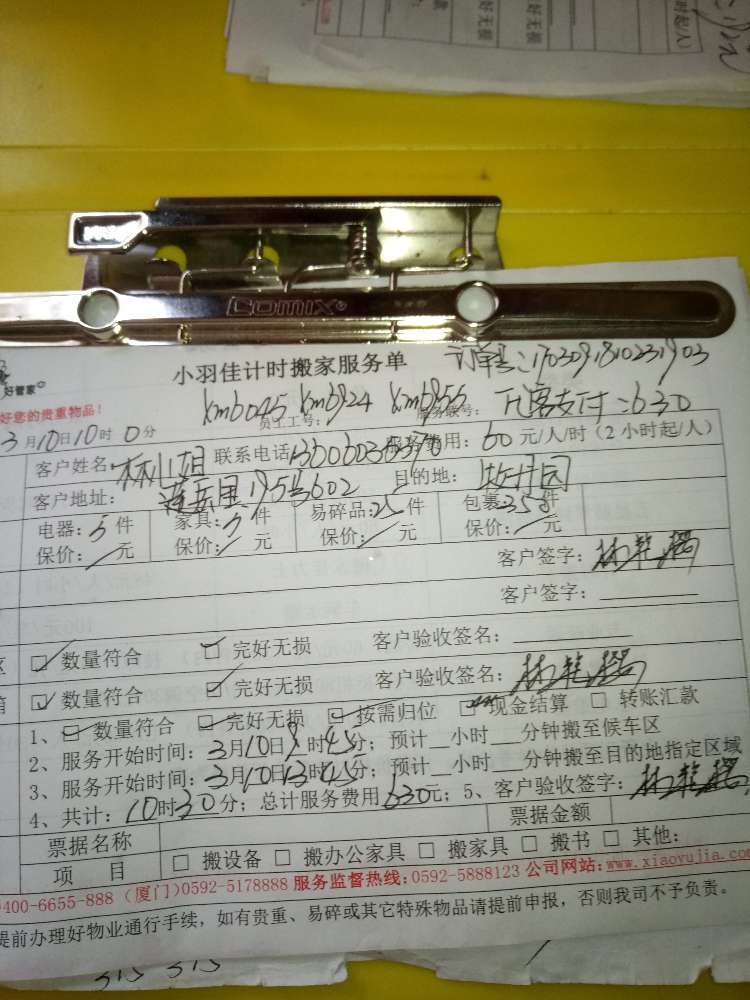 好无损
好无损
时起/人)
COMIX
小羽佳计时搬家服务单
订单号:1703091810231903
好管家
好您的贵重物品!
员工工号: km6045 km6924 km6956 服务账号: 元 客支付:630
3月10日10时0分
客户姓名: 林小姐 联系电话 服务费用: 60 元/人/时(2小时起/人)
客户地址: 莲岳里195号602 目的地: 牡丹园
电器: 5 件 家具: 5 件 易碎品: 25 件 包裹: 35 件
保价: / 元 保价: / 元 保价: / 元 保价: / 元
客户签字:
客户签字:
☑ 数量符合 ☑ 完好无损 客户验收签名:
☑ 数量符合 ☑ 完好无损 客户验收签名:
1、☑ 数量符合 ☑ 完好无损 ☑ 按需归位 ☑ 现金结算 □ 转账汇款
2、服务开始时间: 3月10日9时45分; 预计__小时___分钟搬至候车区
3、服务开始时间: 3月10日13时45分; 预计__小时___分钟搬至目的地指定区域
4、共计: 10时30分; 总计服务费用630元; 5、客户验收签字:
票据名称 票据金额
项 目 □ 搬设备 □ 搬办公家具 □ 搬家具 □ 搬书 □ 其他:
400-6655-888 (厦门)0592-5178888 服务监督热线:0592-5888123 公司网站:www.xiaoyujia.com
提前办理好物业通行手续,如有贵重、易碎或其它特殊物品请提前申报,否则我司不予负责。